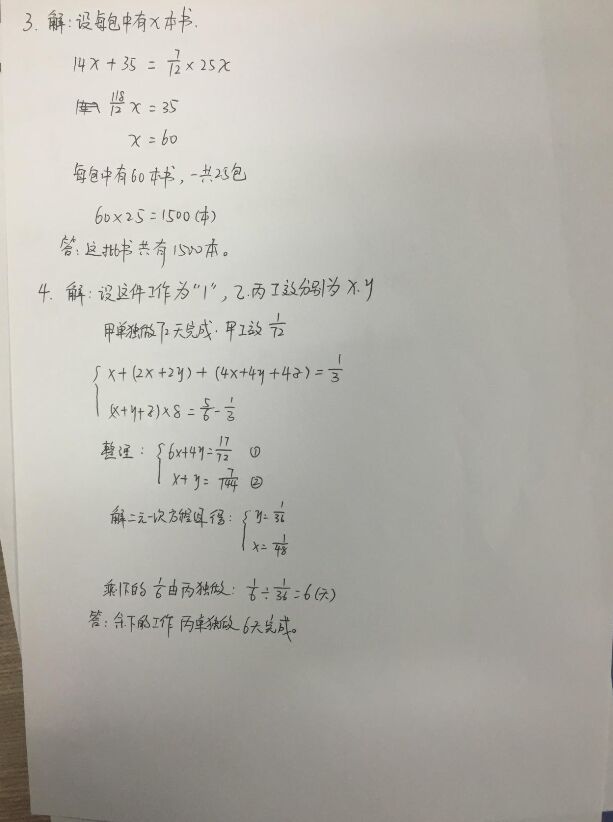 3. 解:设每包中有x本书.
14x + 35 = 7/12 × 25x
118/12 x = 35
x = 60
每包中有60本书,一共25包
60×25 = 1500(本)
答:这批书共有1500本。
4. 解:设这件工作为"1",乙.丙工效分别为x.y
甲单独做72天完成.甲工效 1/72
{ x + (2x+2y) + (4x+4y+4z) = 1/3
(x+y+z)×8 = 5/6 - 1/3
整理: { 6x+4y = 17/72 ①
x+y = 7/144 ②
解二元一次方程组得: { y = 1/36
x = 1/48
剩下的 1/6 由丙独做: 1/6 ÷ 1/36 = 6(天)
答:余下的工作丙单独做6天完成。